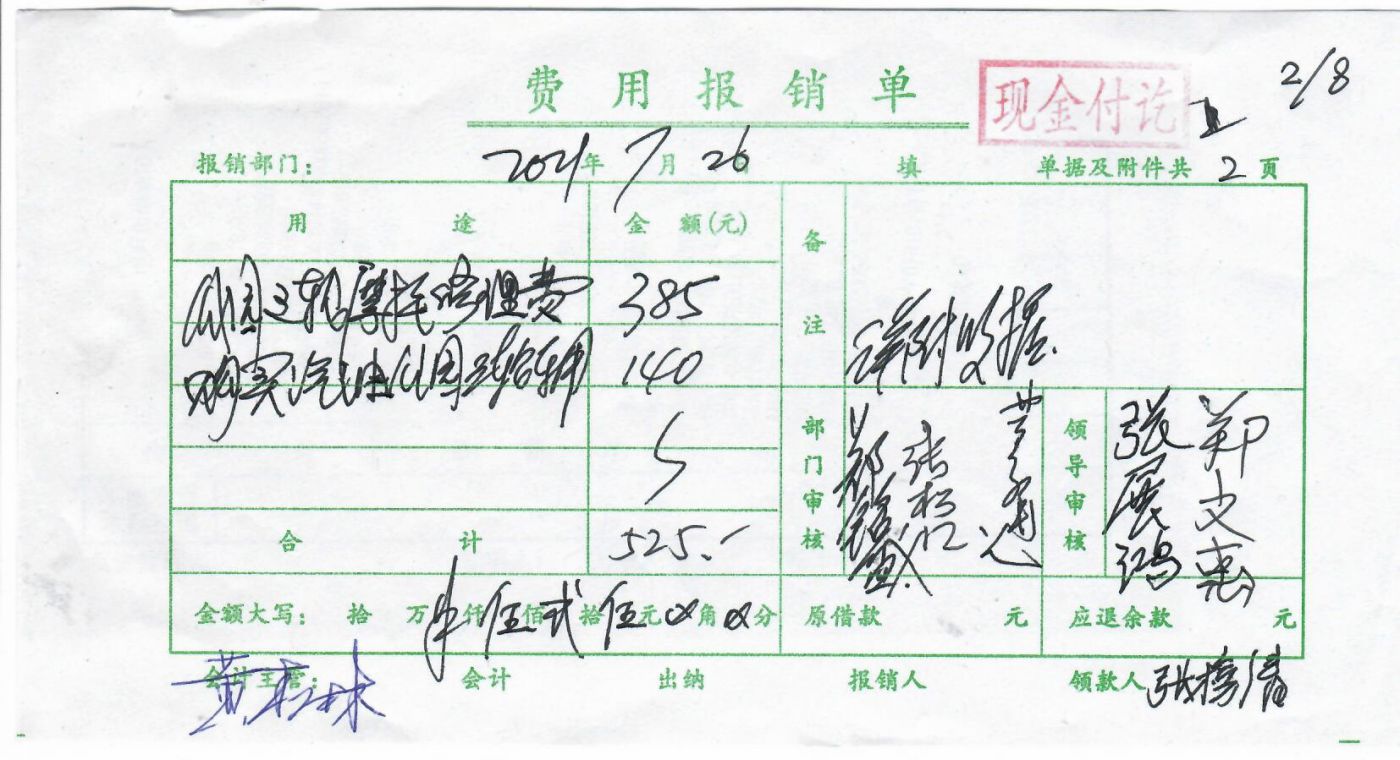 费用报销单
现金付讫
2/8
报销部门： 2021年7月26 填 单据及附件共 2 页
用途 金额(元) 备注
公园三轮摩托修理费 385
购买汽油公园三轮车用 140
详附收据.
部门审核 郑 张
领导审核 张展鸿 郑文惠
合计 525.-
金额大写： 拾 万 仟 伍佰 弍拾 伍元 角 分 原借款 元 应退余款 元
会计主管： 会计 出纳 报销人 领款人